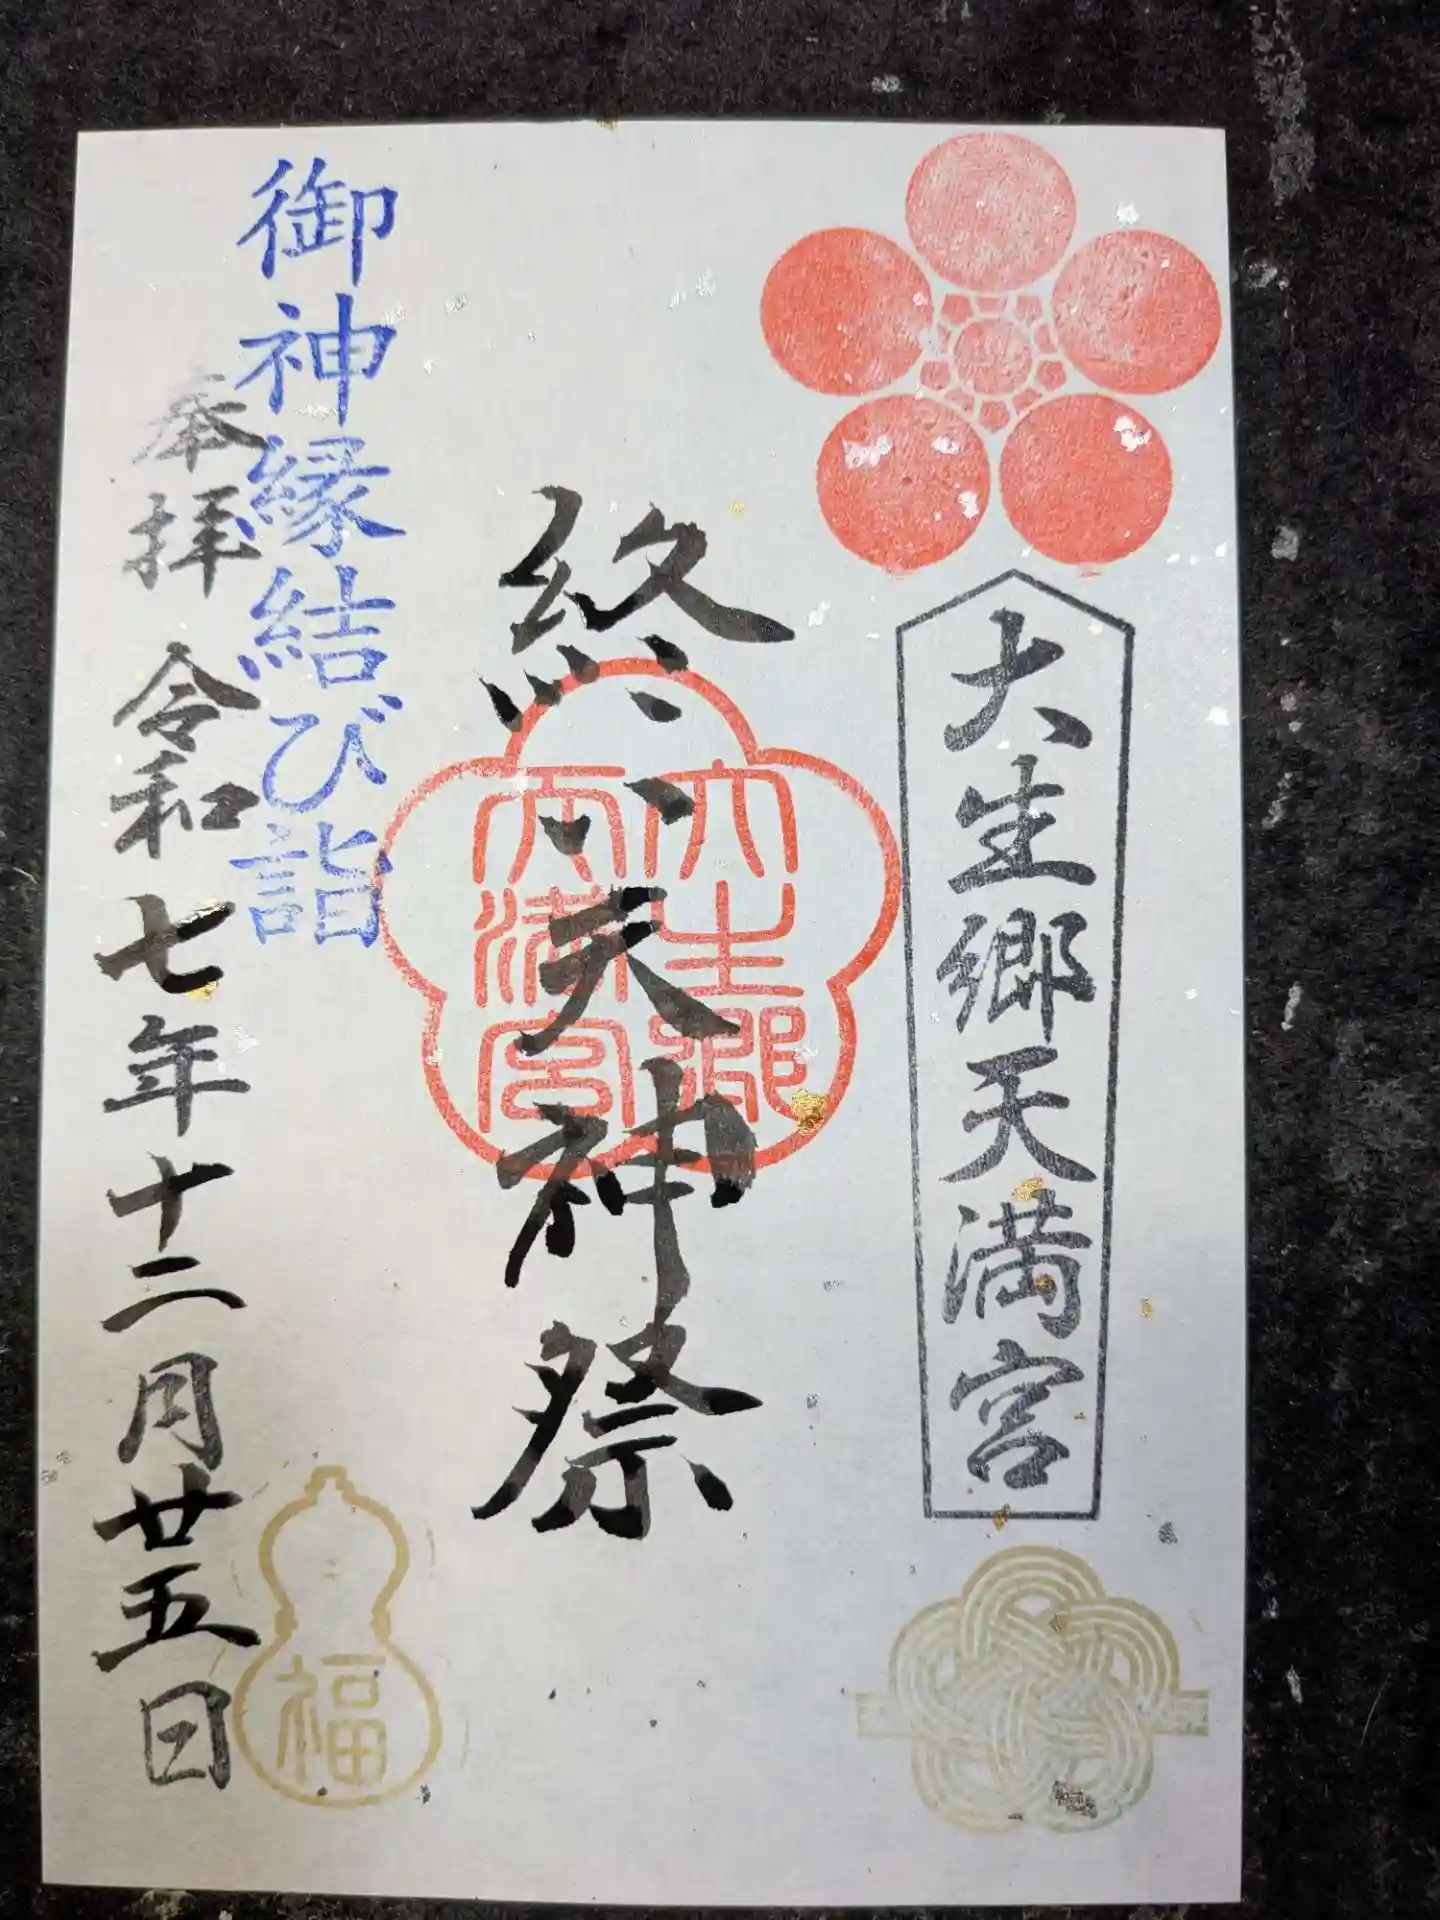 大生郷天満宮
終い天神祭
大生郷
天満宮
御神縁結び詣
奉拝 令和七年十二月廿五日
福